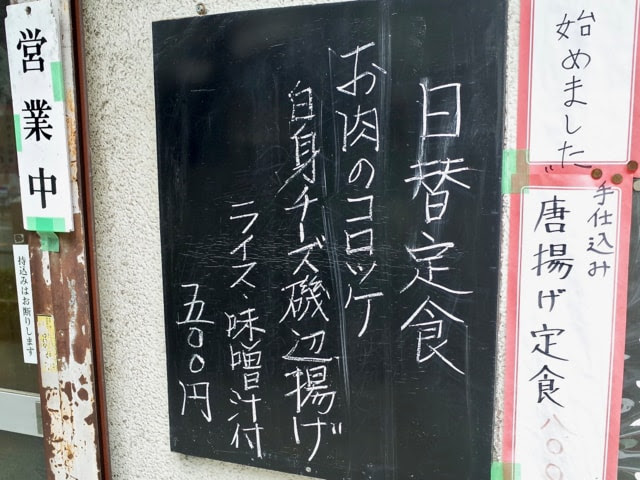 営業中
持込みはお断りします
日替定食
お肉のコロッケ
白身チーズ磯辺揚げ
ライス・味噌汁付
五〇〇円
始めました
手仕込み
唐揚げ定食
八〇〇